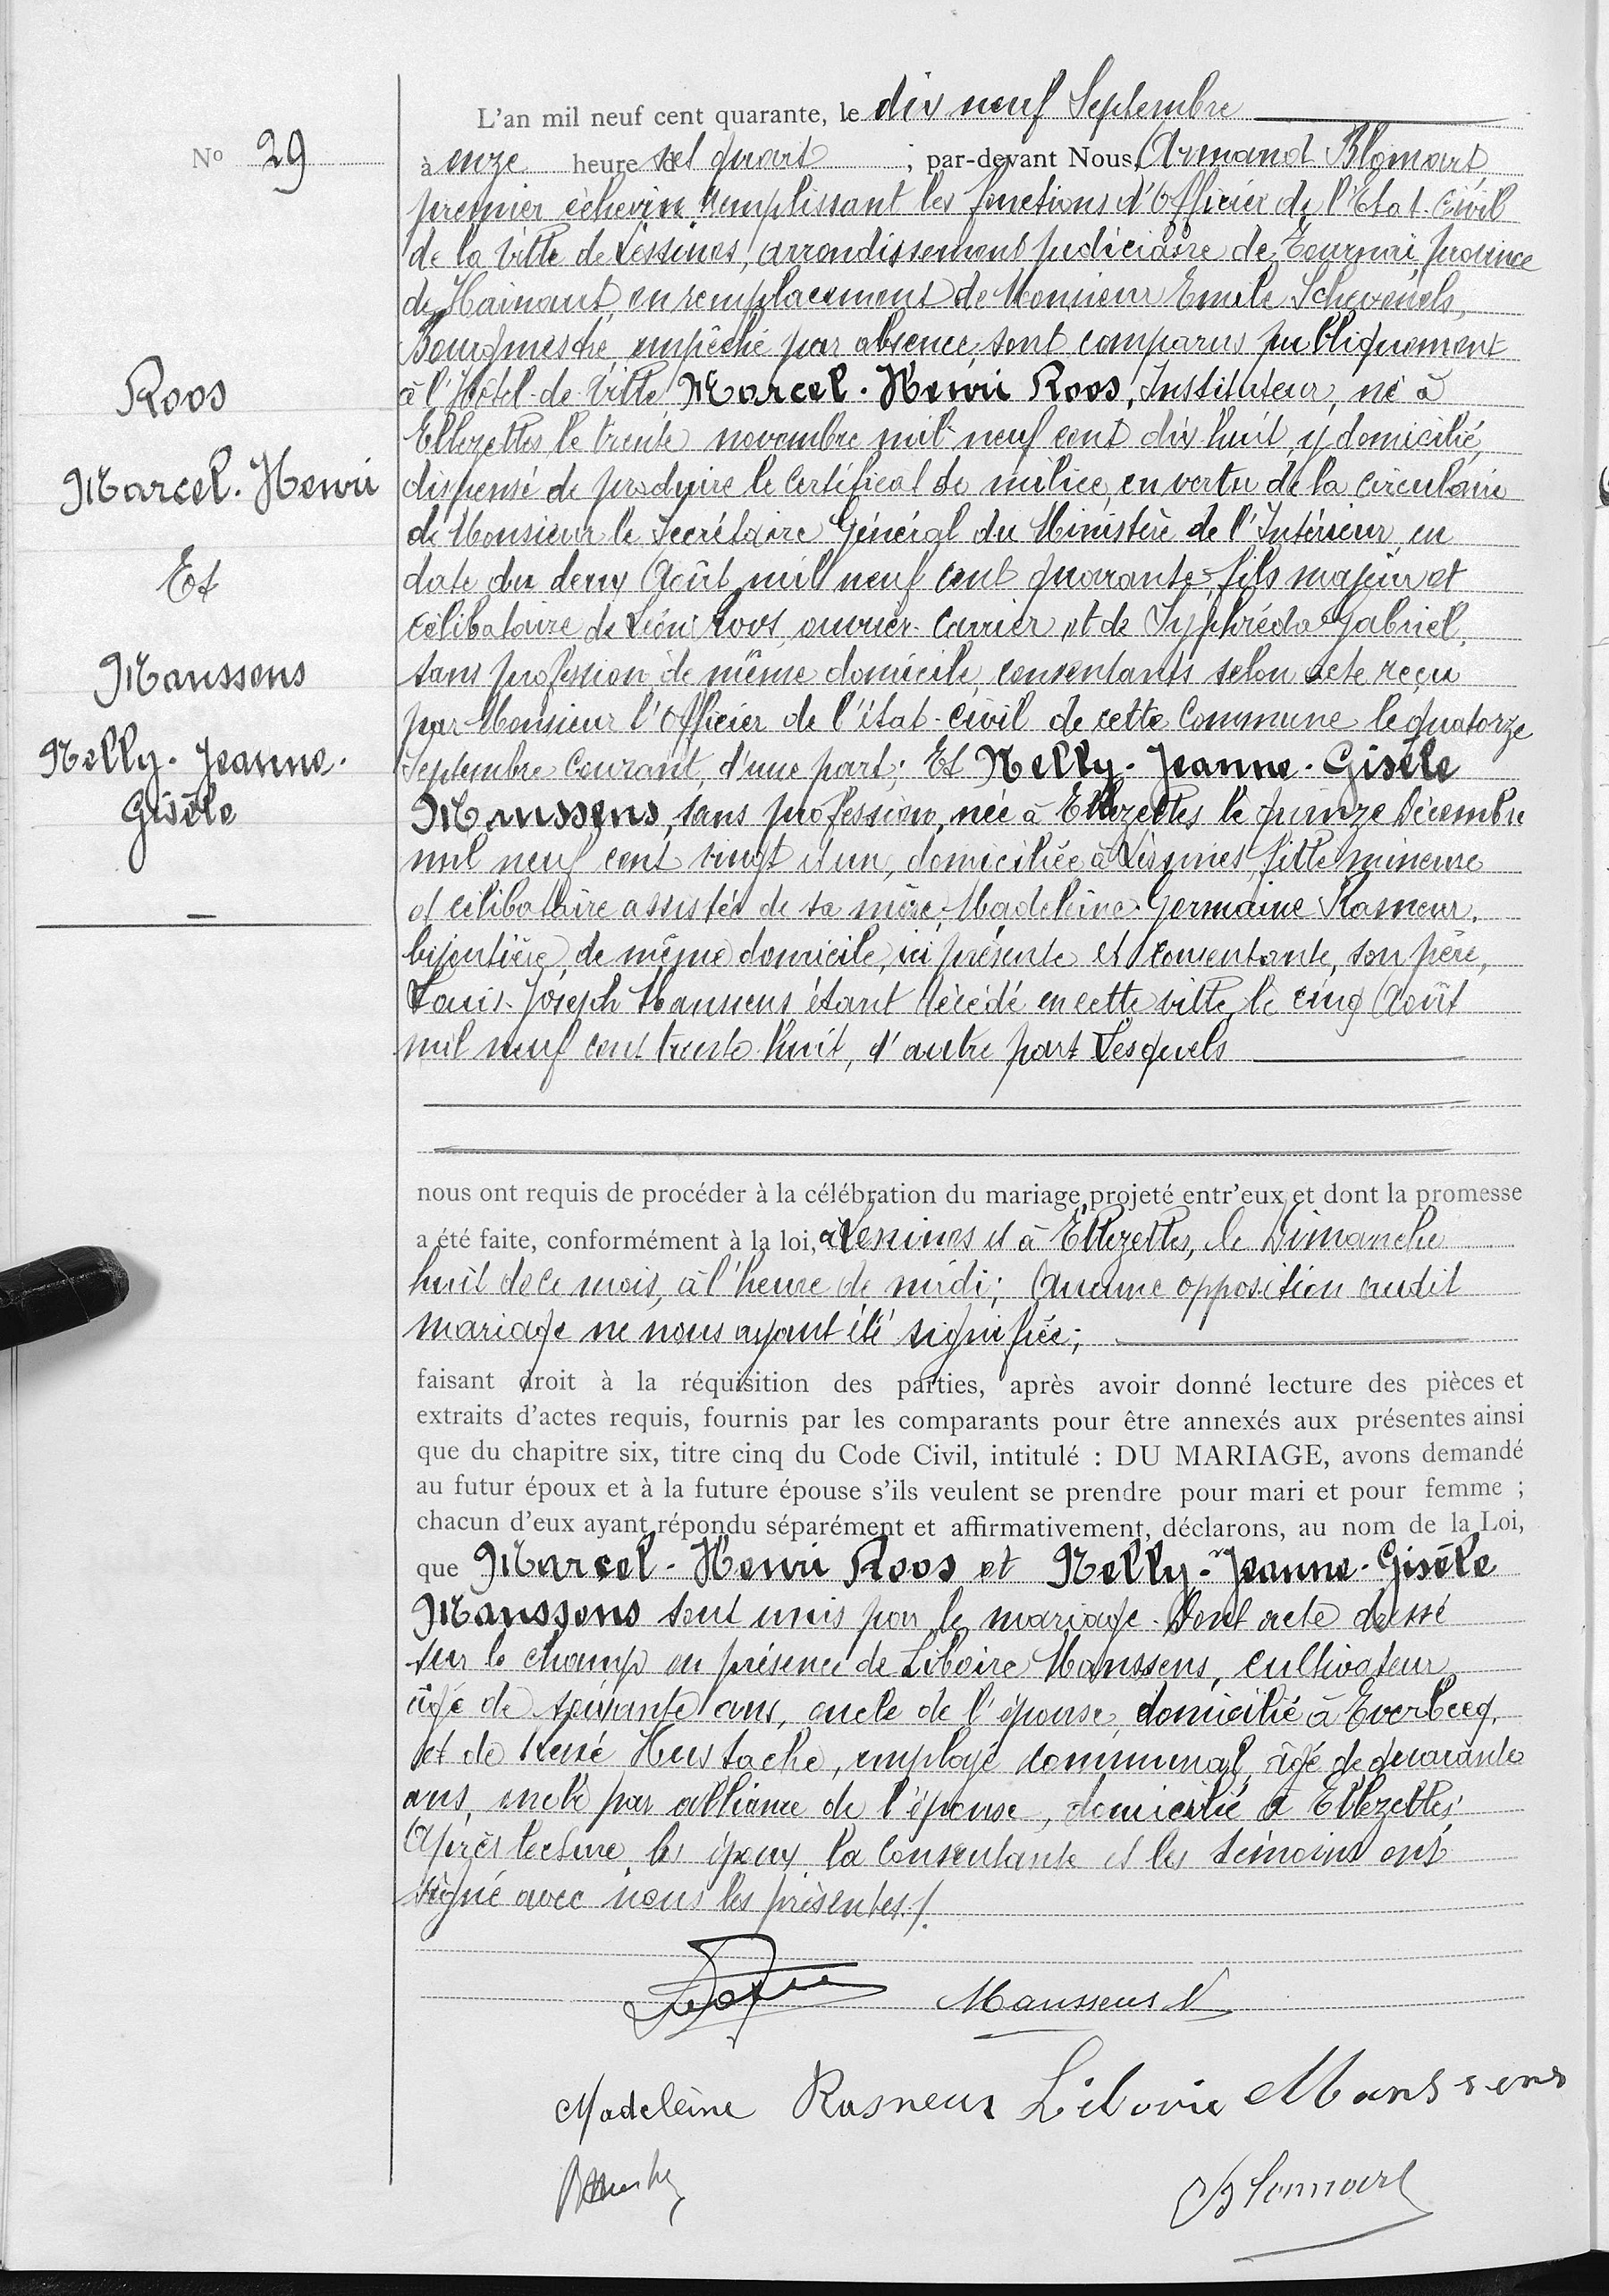 L'an mil neuf cent quarante, le dix neuf Septembre
No 29
à onze heure et quart ; par-devant Nous, Armand Blomart,
premier échevin remplissant les fonctions d'Officier de l'Etat-Civil
de la Ville de Lessines, arrondissement judiciaire de Tournai, province
de Hainaut, en remplacement de Monsieur Emile Schevenels,
Bourgmestre, empêché par absence, sont comparus publiquement
à l'Hôtel-de-Ville, Marcel-Henri Roos, Instituteur, né à
Ellezelles le trente novembre mil neuf cent dix huit, y domicilié,
dispensé de produire le certificat de milice en vertu de la circulaire
de Monsieur le Secrétaire Général du Ministère de l'Intérieur, en
date du deux Août mil neuf cent quarante, fils majeur et
célibataire de Léon Roos, ouvrier-carrier, et de Sylphréda Gabriel,
sans profession, de même domicile, consentants selon acte reçu
par Monsieur l'Officier de l'état-civil de cette commune le quatorze
Septembre courant, d'une part; Et Nelly-Jeanne-Gisèle
Manssens, sans profession, née à Ellezelles le quinze Décembre
mil neuf cent vingt et un, domiciliée à Lessines, fille mineure
et célibataire assistée de sa mère, Madeleine-Germaine Rasneur,
bijoutière, de même domicile, ici présente et consentante, son père,
Louis-Joseph Manssens étant décédé en cette ville, le cinq Août
mil neuf cent trente huit, d'autre part Lesquels
Roos
Marcel-Henri
Et
Manssens
Nelly-Jeanne-
Gisèle
nous ont requis de procéder à la célébration du mariage projeté entr'eux et dont la promesse
a été faite, conformément à la loi, à Lessines et à Ellezelles, le Dimanche
huit de ce mois, à l'heure de midi; Aucune opposition audit
mariage ne nous ayant été signifiée;
faisant droit à la réquisition des parties, après avoir donné lecture des pièces et
extraits d'actes requis, fournis par les comparants pour être annexés aux présentes ainsi
que du chapitre six, titre cinq du Code Civil, intitulé : DU MARIAGE, avons demandé
au futur époux et à la future épouse s'ils veulent se prendre pour mari et pour femme ;
chacun d'eux ayant répondu séparément et affirmativement, déclarons, au nom de la Loi,
que Marcel-Henri Roos et Nelly-Jeanne-Gisèle
Manssens sont unis par le mariage. Dont acte dressé
sur le champ en présence de Liboire Manssens, cultivateur,
âgé de soixante ans, oncle de l'épouse, domicilié à Everbecq,
et de René Hustache, employé communal, âgé de quarante
ans, oncle par alliance de l'épouse, domicilié à Ellezelles;
Après lecture, les époux, la consentante et les témoins ont
signé avec nous les présentes./.
Manssens N
Madeleine Rasneur Liboire Manssens
Blomart